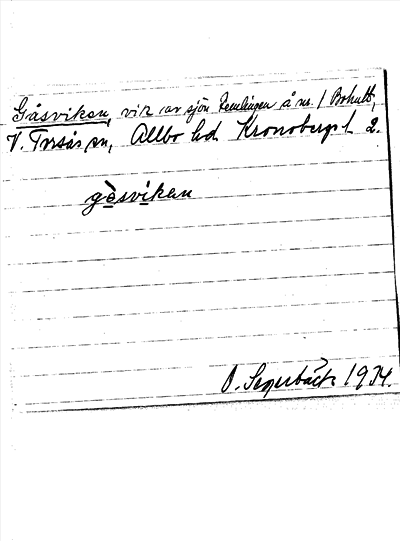 Gåsviken, vik av sjön Femlingen å nr. 1 Bohult,
V. Torsås sn, Allbo hd Kronobergs l 2.
gåsviken
O. Segerbäck 1934.